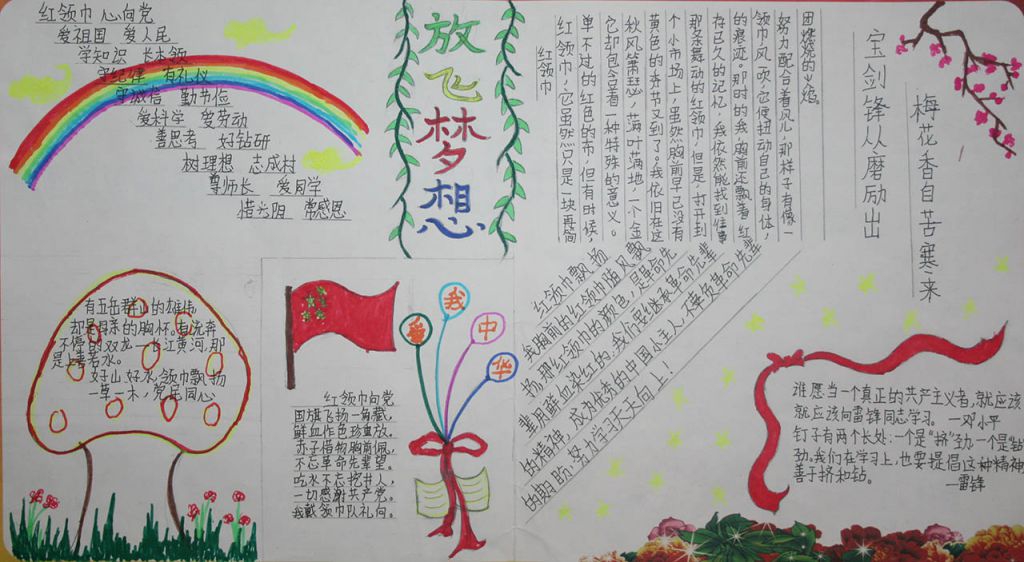 红领巾 心向党
爱祖国 爱人民
学知识 长本领
守纪律 有礼仪
守诚信 勤节俭
爱科学 爱劳动
善思考 好钻研
树理想 志成村
尊师长 爱同学
惜光阴 常感恩
放飞梦想
红领巾
红领巾，它虽然只是一块再简
单不过的红色的布，但有时候，
它却包含着一种特殊的意义。
秋风箫瑟，落叶满地，一个金
黄色的季节又到了。我依旧在这
个小市场上，虽然胸前早已没有
那条舞动的红领巾，但是，打开到
存已久的记忆，我依然能找到往事
的痕迹。那时的我，胸前还飘着红
领巾，风一吹，它便扭动自己的身体，
努力配合着风儿，那样子有像一
团燃烧的火焰。
宝剑锋从磨励出
梅花香自苦寒来
有五岳群山的雄伟
却是母亲的胸怀。有流奔
不停的双龙—长江黄河，那
是上善若水。
好山好水领巾飘扬
一草一木，党民同心
我
爱
中
华
红领巾向党
国旗飞扬一角戴，
鲜血作色珍重放。
赤子借物胸前佩，
不忘革命先辈望。
吃水不忘挖井人，
一切感谢共产党。
我戴领巾队礼向。
红领巾飘扬
我胸前的红领巾随风飘
扬，那红领巾的颜色，是革命先
辈用鲜血染红的，我们要继承革命先辈
的精神，成为优秀的中国小主人，不辜负革命先辈
的期盼，努力学习天天向上！
谁愿当一个真正的共产主义者，就应该
就应该向雷锋同志学习。 —邓小平
钉子有两个长处：一个是“挤”劲一个是钻
劲。我们在学习上，也要提倡这种精神
善于挤和钻。
—雷锋